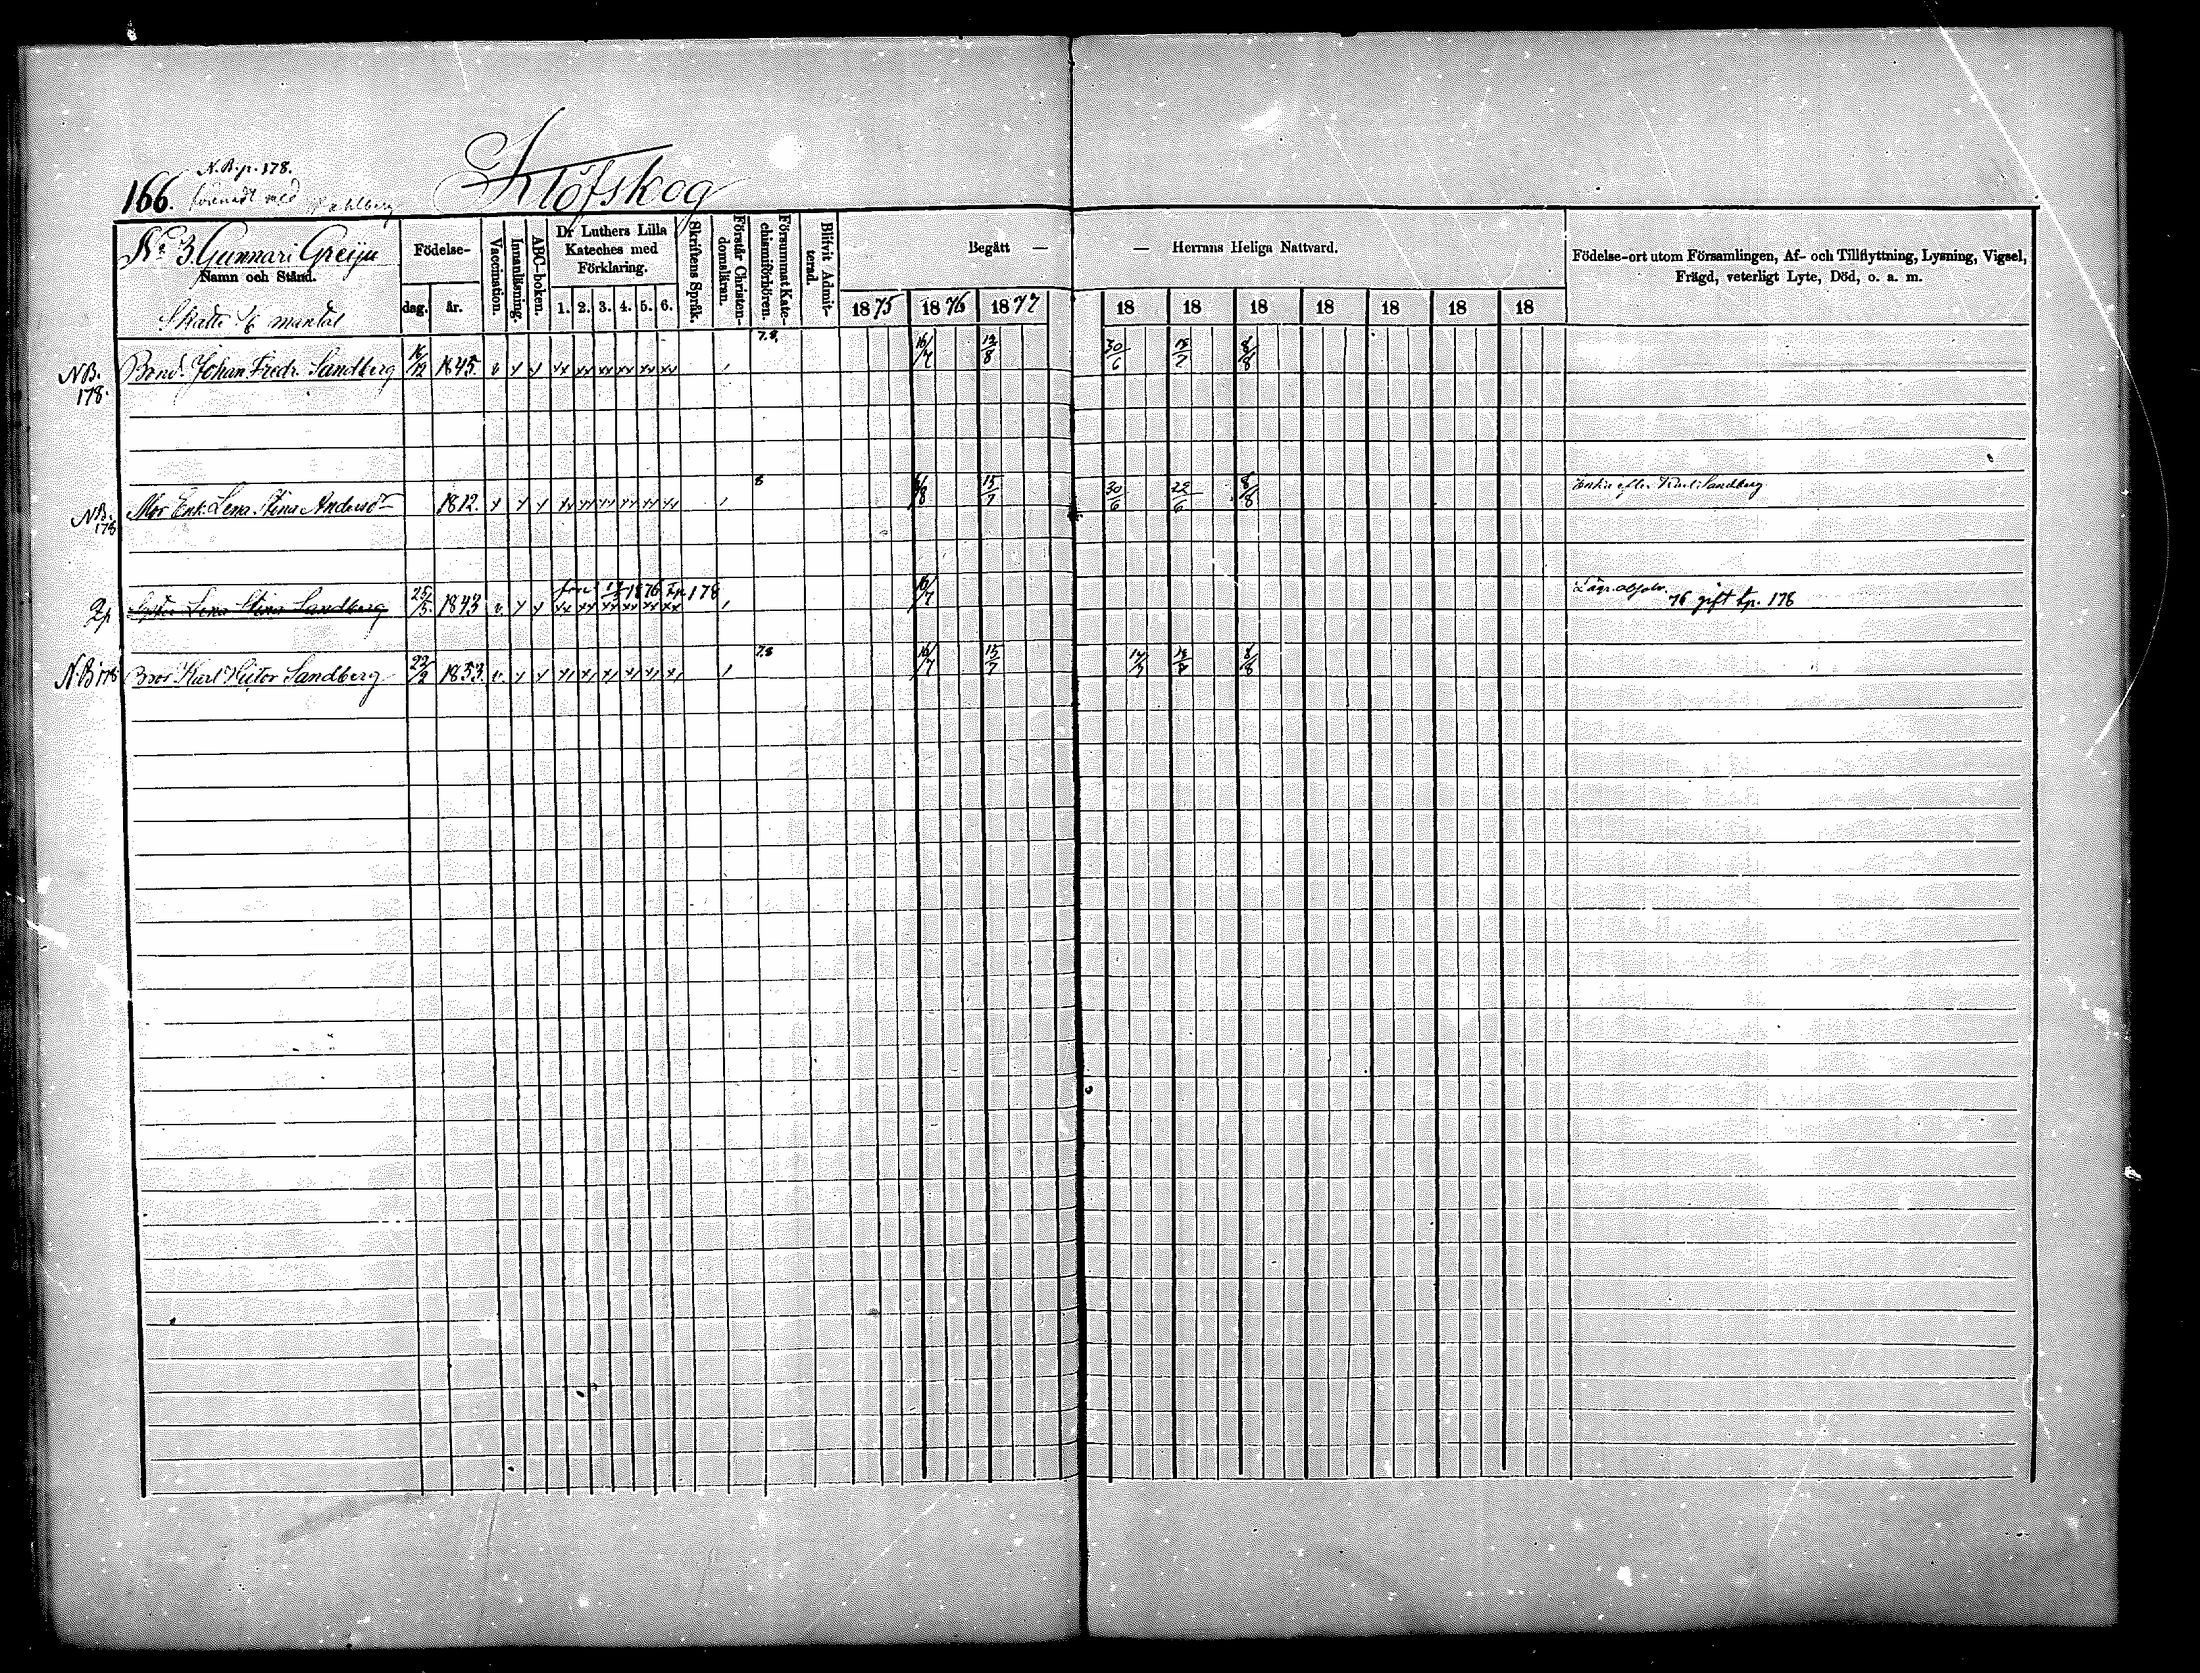 N.B. p. 178.
166. förenadt med Dahlberg
Klöfskog
No 3 Gunnari Greiju
Namn och Stånd.
Skatte 1/6 mantal
Födelse-
dag. år.
Vaccination.
Innanläsning.
ABC-boken.
Dr Luthers Lilla
Kateches med
Förklaring.
1. 2. 3. 4. 5. 6.
Skriftens Språk.
Förstår Christendomsläran.
Försummat Katechismiförhören.
Blifvit Admitterad.
Begått — — Herrans Heliga Nattvard.
1875 1876 1877 18 18 18 18 18 18 18
Födelse-ort utom Församlingen, Af- och Tillflyttning, Lysning, Vigsel,
Frägd, veterligt Lyte, Död, o. a. m.
7.8.
N.B. 178. Bond. Johan Fredr. Sandberg 16/12 1845. v x x xx xx xx xx xx xx / 16/7 12/8 30/6 8/8
8
N.B. 178 Mor Enk. Lena Stina Andersdr 1812. x x x xx xx xx xx xx xx / 15/7 30/6 8/8 Enka efter Karl Sandberg
2p Syster Lena Stina Sandberg 25/5 1843 v. x x xx xx xx xx xx xx / 16/7
1876 tp. 178
76 gift tp. 178
7.8
N.B 178 Bror Karl Victor Sandberg 22/2 1853. v. x x / 16/7 15/7 8/8